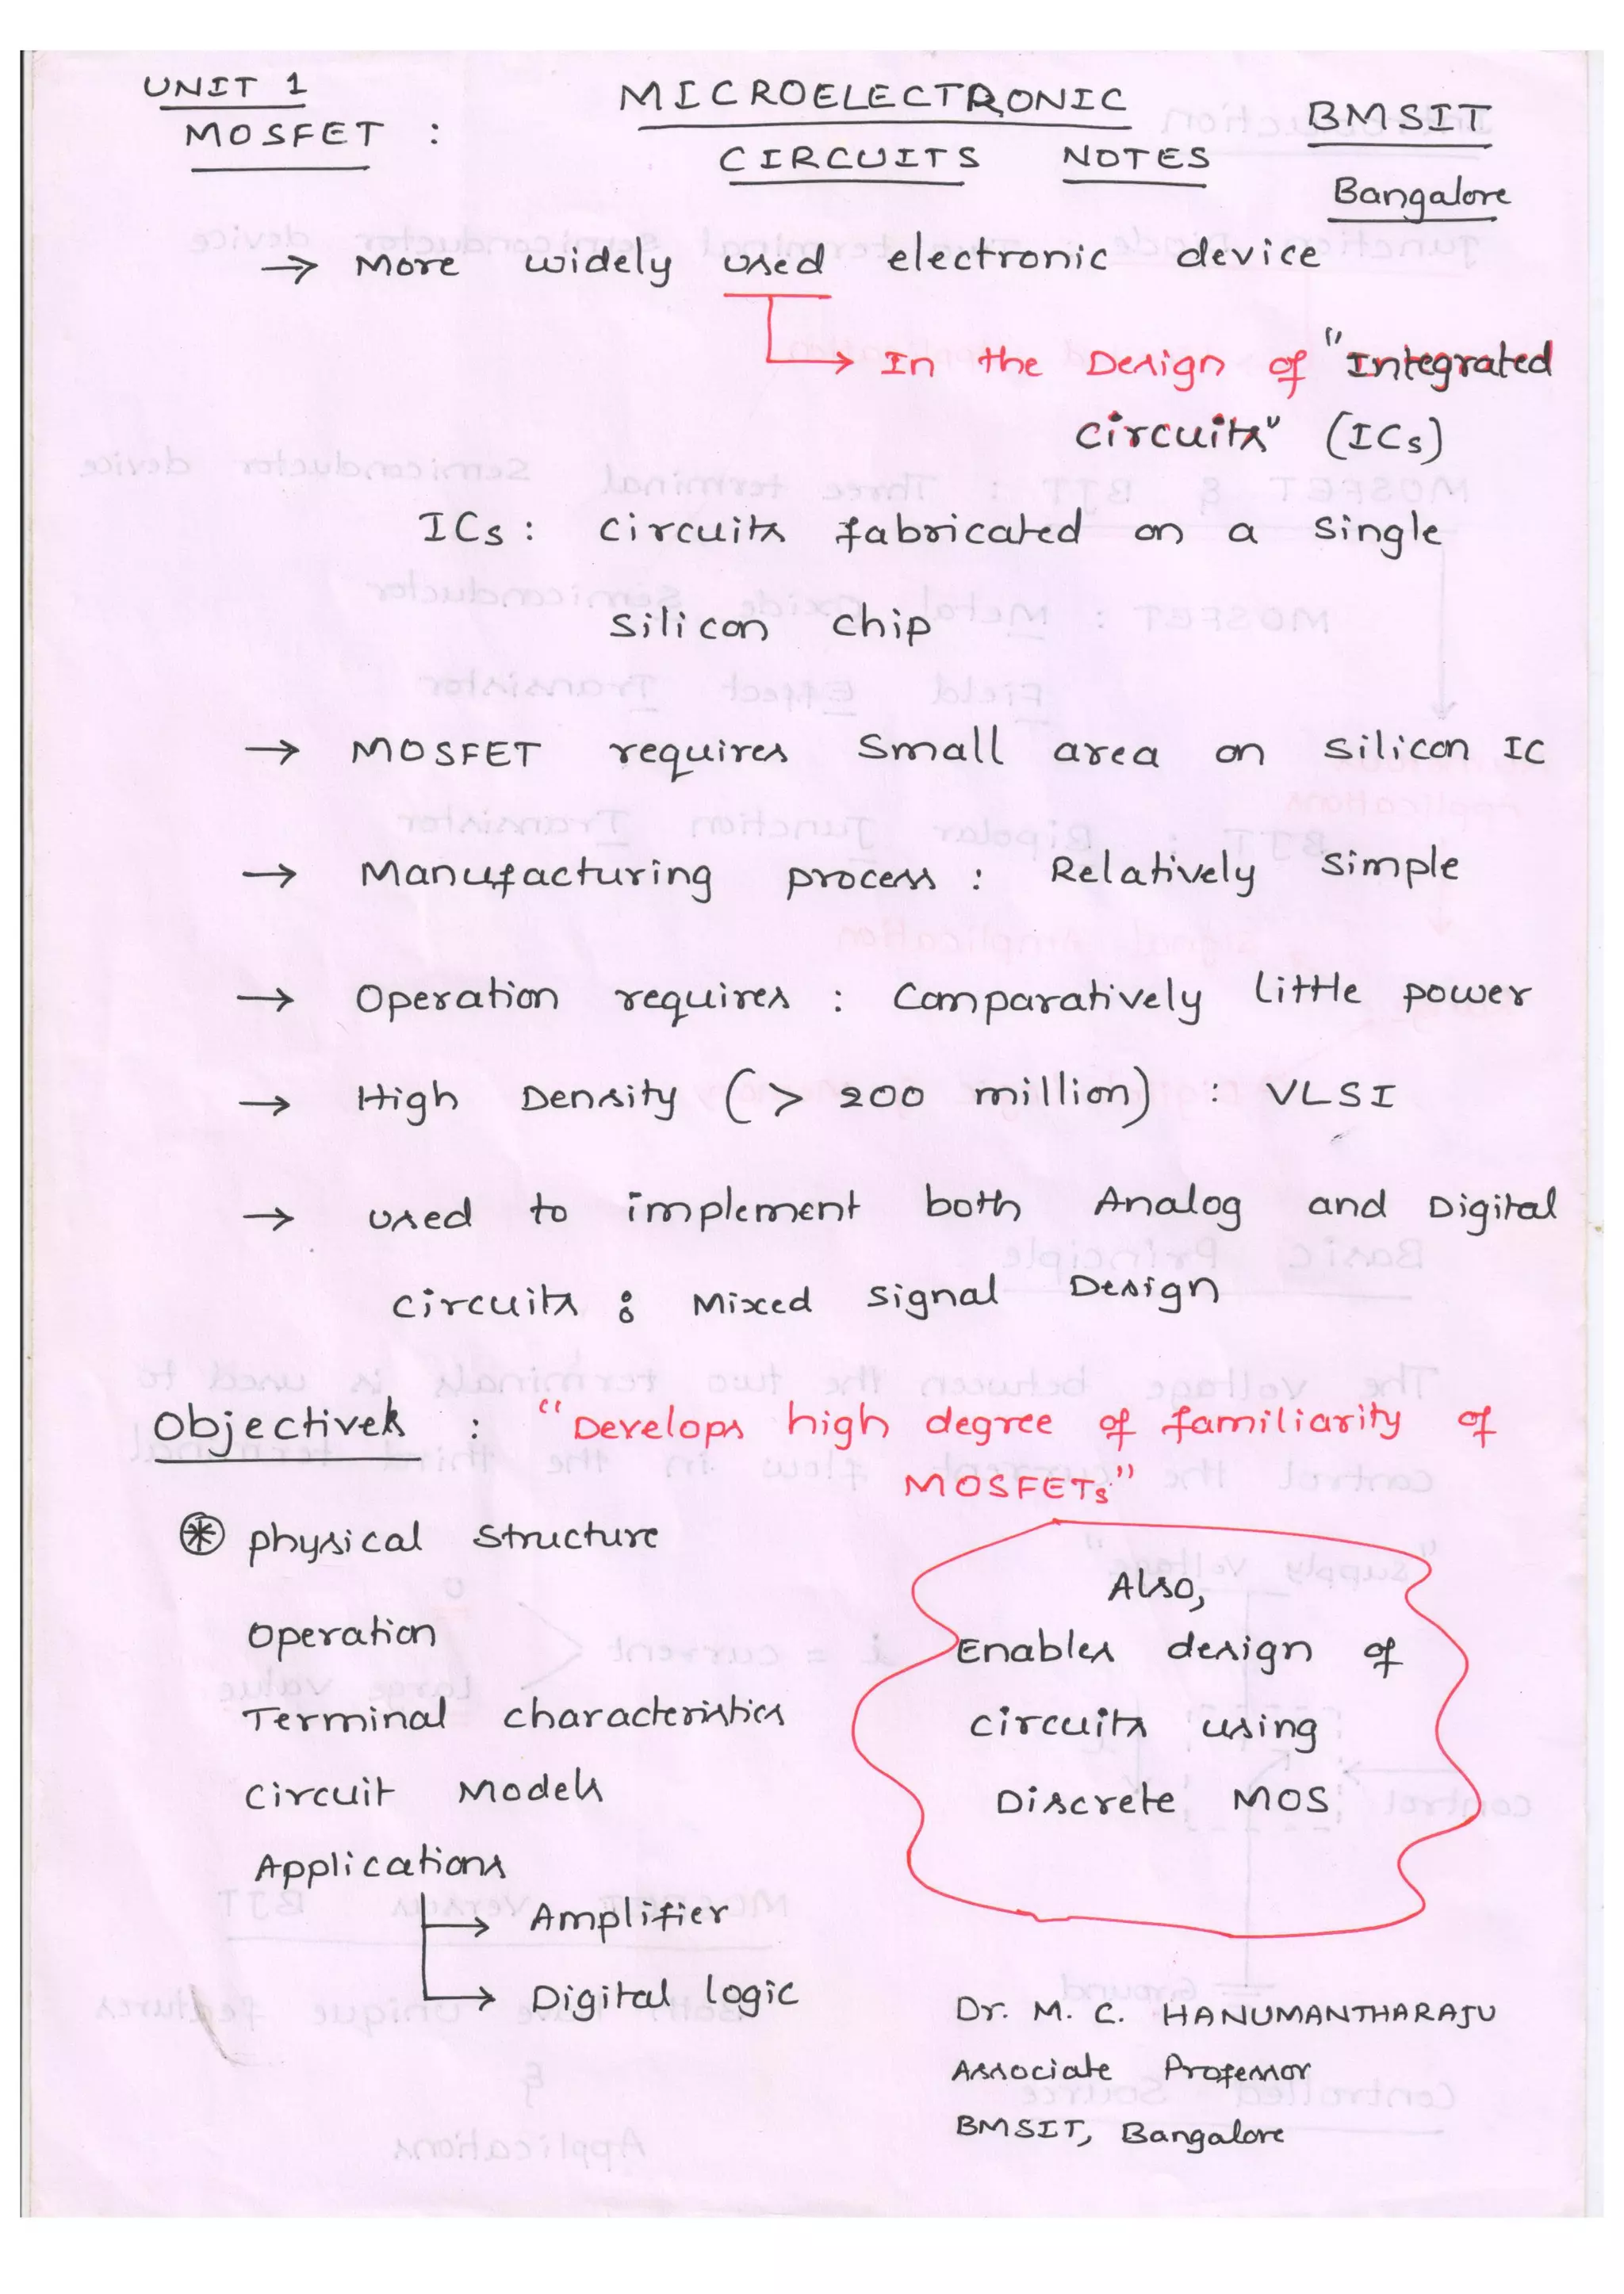 UNIT 1
MICROELECTRONIC
BMSIT
MOSFET :
CIRCUITS NOTES
Bangalore
→ More widely used electronic device
→ In the Design of "Integrated
circuits" (ICs)
ICs : circuits fabricated on a single
silicon chip
→ MOSFET requires small area on silicon IC
→ Manufacturing process : Relatively simple
→ Operation requires : Comparatively little power
→ High Density (> 200 million) : VLSI
→ used to implement both Analog and Digital
circuits : Mixed signal Design
Objectives : "Develops high degree of familiarity of
MOSFETs"
* physical structure
operation
Terminal characteristics
circuit Models
Applications
→ Amplifier
→ Digital logic
Also,
Enables design of
circuits using
Discrete MOS
Dr. M. C. HANUMANTHARAJU
Associate Professor
BMSIT, Bangalore